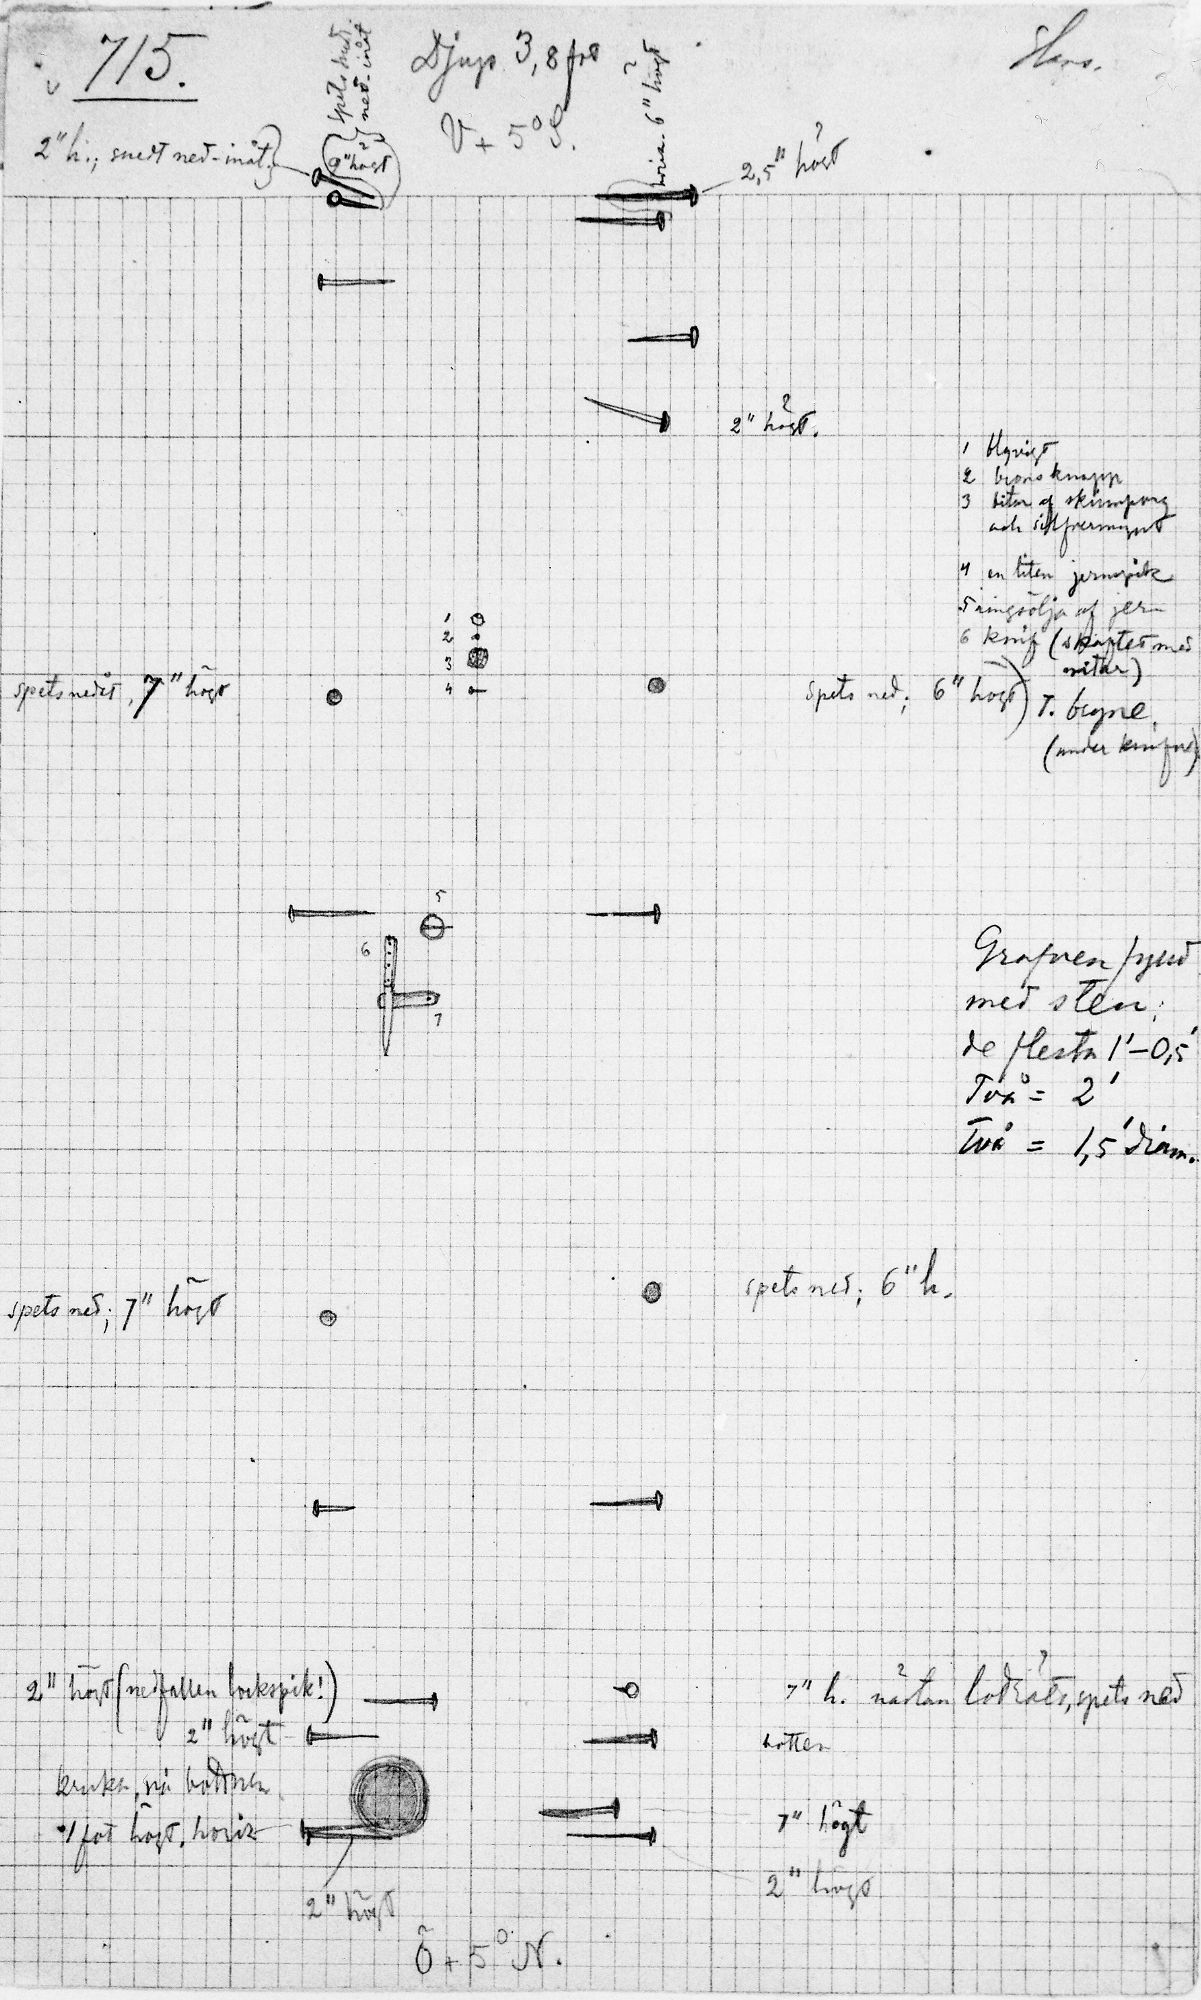 715.
Djup 3,8 fot
V + 5° S.
spets ned.
ned-inåt
9" högt
horiz. 6" högt
2" h.; snedt ned-inåt.
2,5" högt
2" högt.
1 blyvigt
2 bronsknapp
3 bitar af skinnpung
och silfvermynt
4 en liten jernspik
5 ringsölja af jern
6 knif (skaftet med
nitar)
7. bryne
(under knifven)
1
2
3
4
spets nedåt, 7" högt
spets ned; 6" högt
5
6
7
Grafven fyld
med sten;
de flesta 1'–0,5'
Två = 2'
Två = 1,5' diam.
spets ned; 7" högt
spets ned; 6" h.
2" högt (nedfallen lockspik!)
2" högt
kruka, på bottnen
1 fot högt, horiz
2" högt
7" h. nästan lodrät, spets ned
botten
7" högt
2" högt
Ö + 5° N.